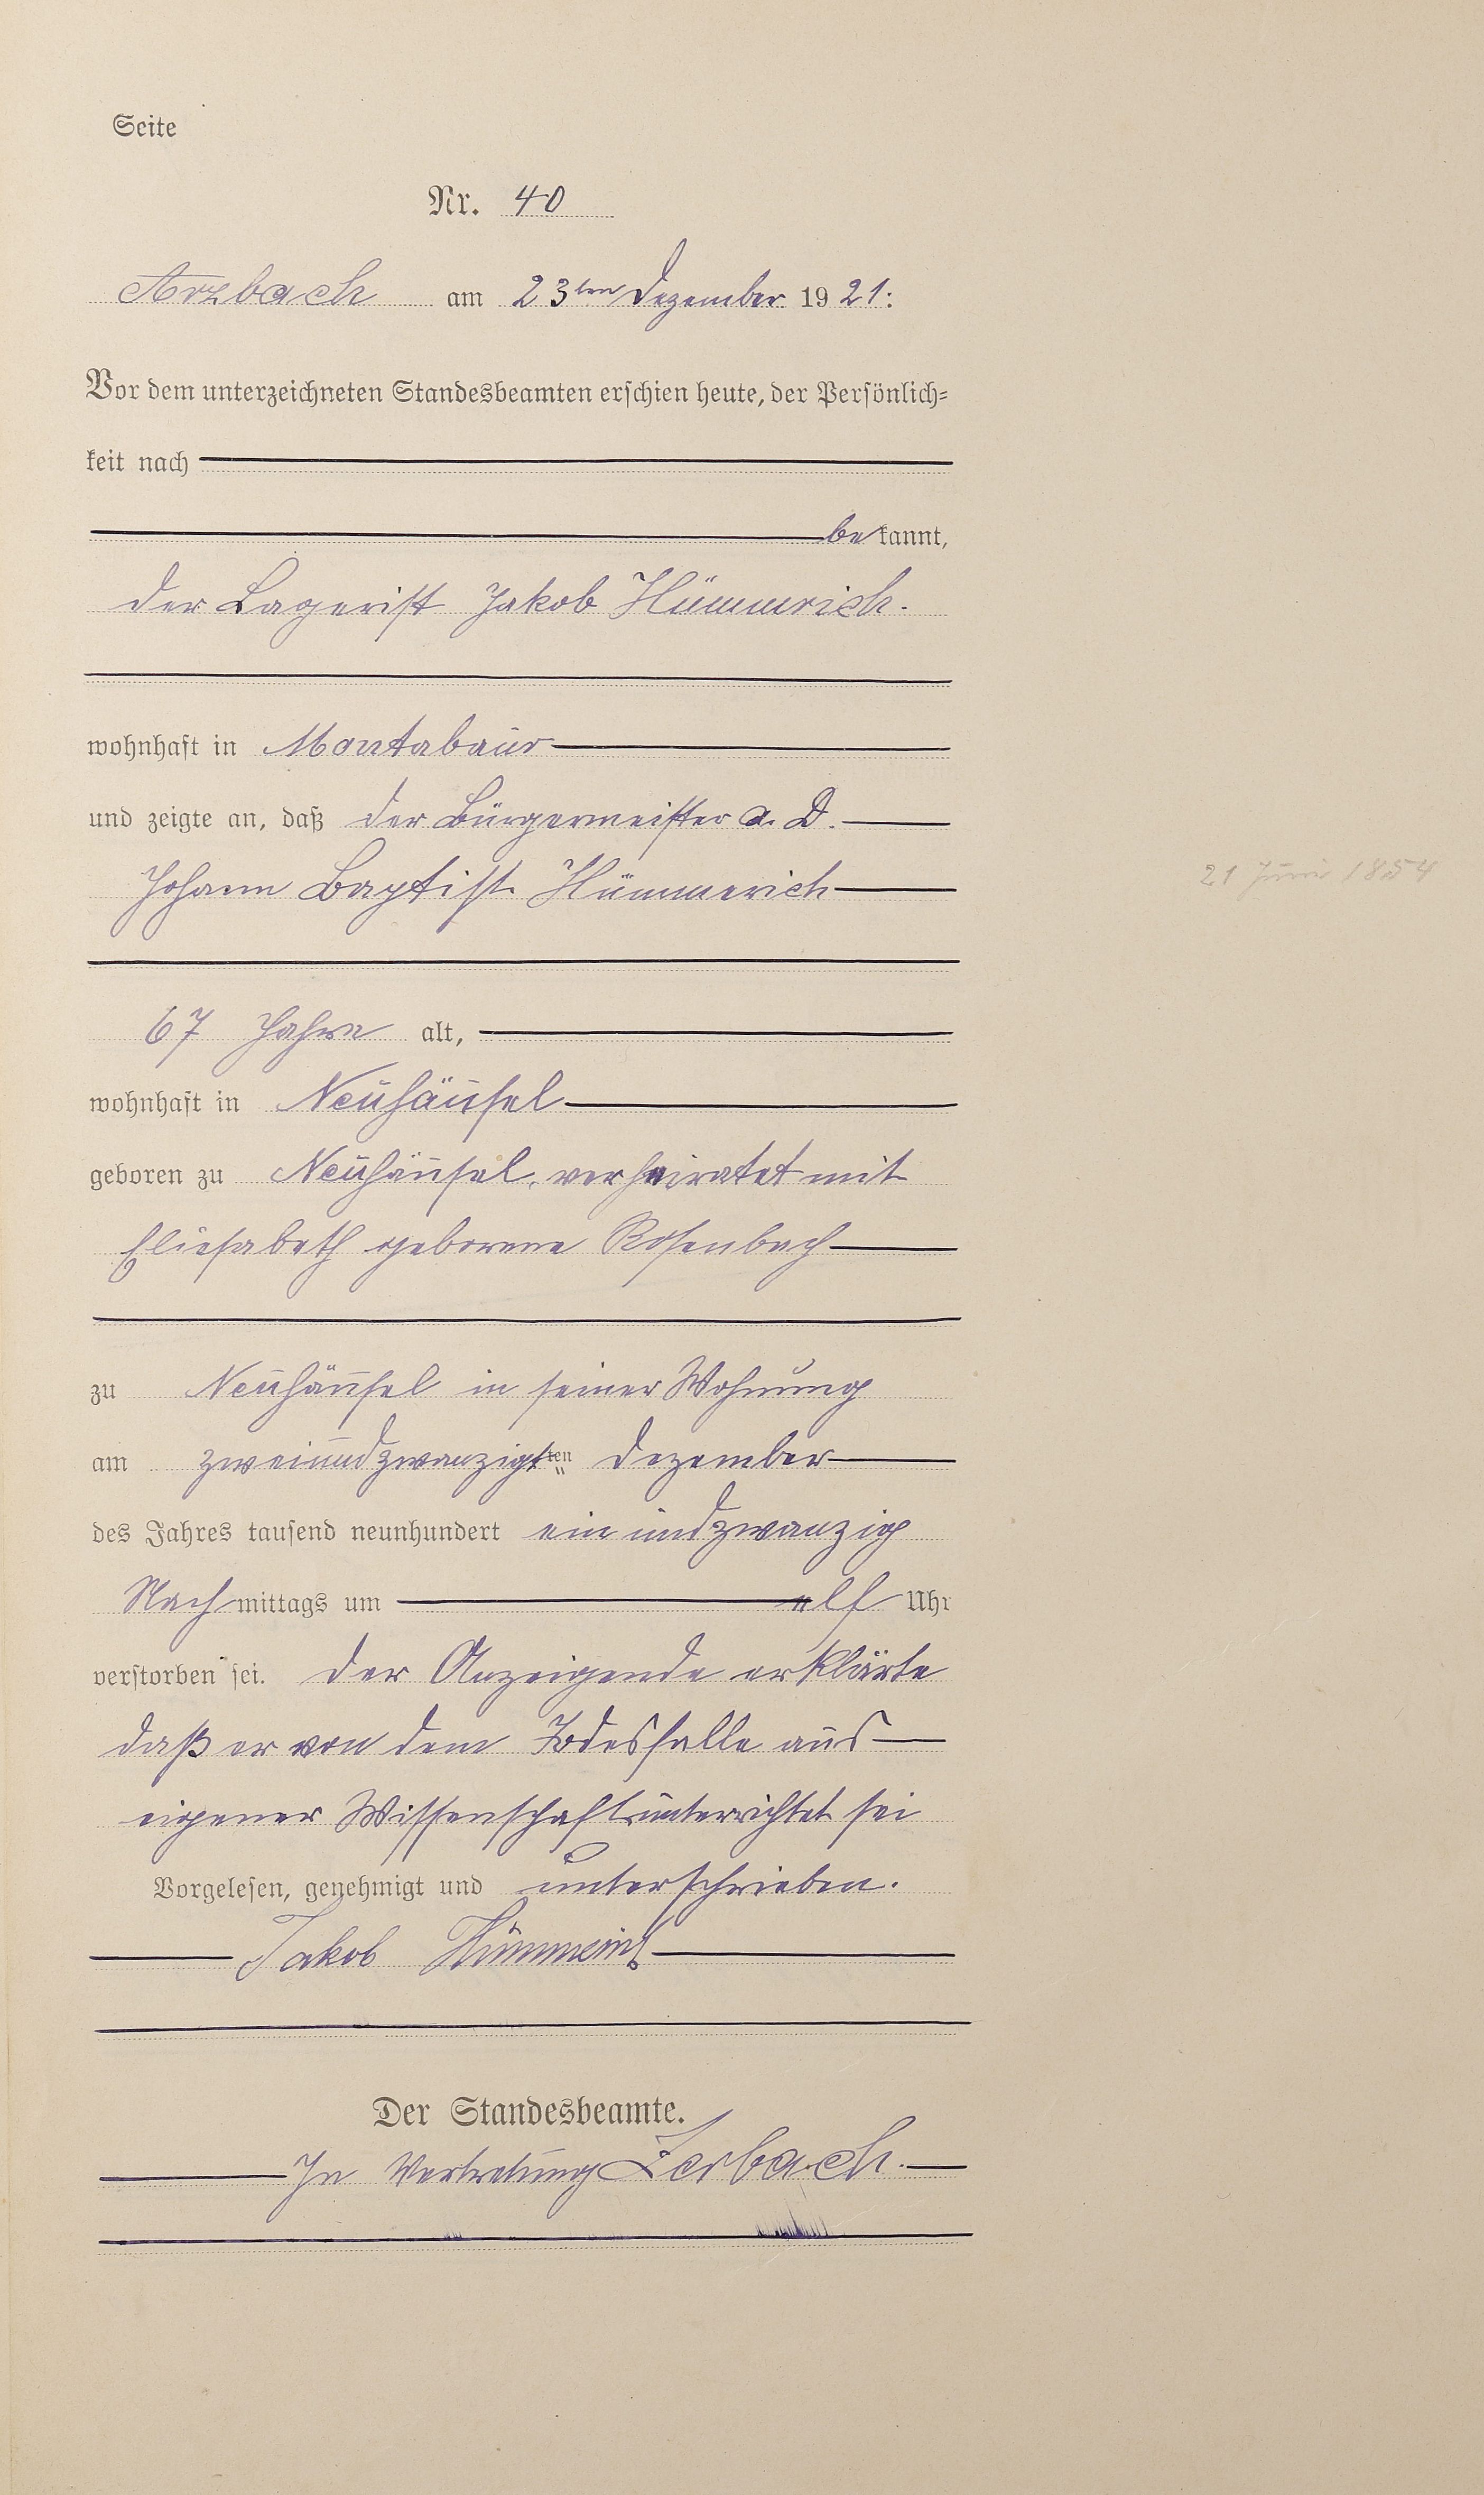 Seite
Nr. 40
Arzbach am 23ten Dezember 1921:
Vor dem unterzeichneten Standesbeamten erschien heute, der Persönlich=
keit nach
bekannt,
der Lagerist Jakob Hümmrich.
wohnhaft in Montabaur
und zeigte an, daß der Bürgermeister a. D.
Johann Baptist Hümmerich
21 Juni 1854
67 Jahre alt,
wohnhaft in Neuhäusel
geboren zu Neuhäusel, verheiratet mit
Eliesabeth geborene Rosenbach
zu Neuhäusel in seiner Wohnung
am zweiundzwanzigsten Dezember
des Jahres tausend neunhundert ein und zwanzig
Nachmittags um elf Uhr
verstorben sei. Der Anzeigende erklärte
daß er von dem Todesfalle aus
eigener Wissenschaft unterrichtet sei
Vorgelesen, genehmigt und unterschrieben.
Jakob Hümmerich
Der Standesbeamte.
In Vertretung